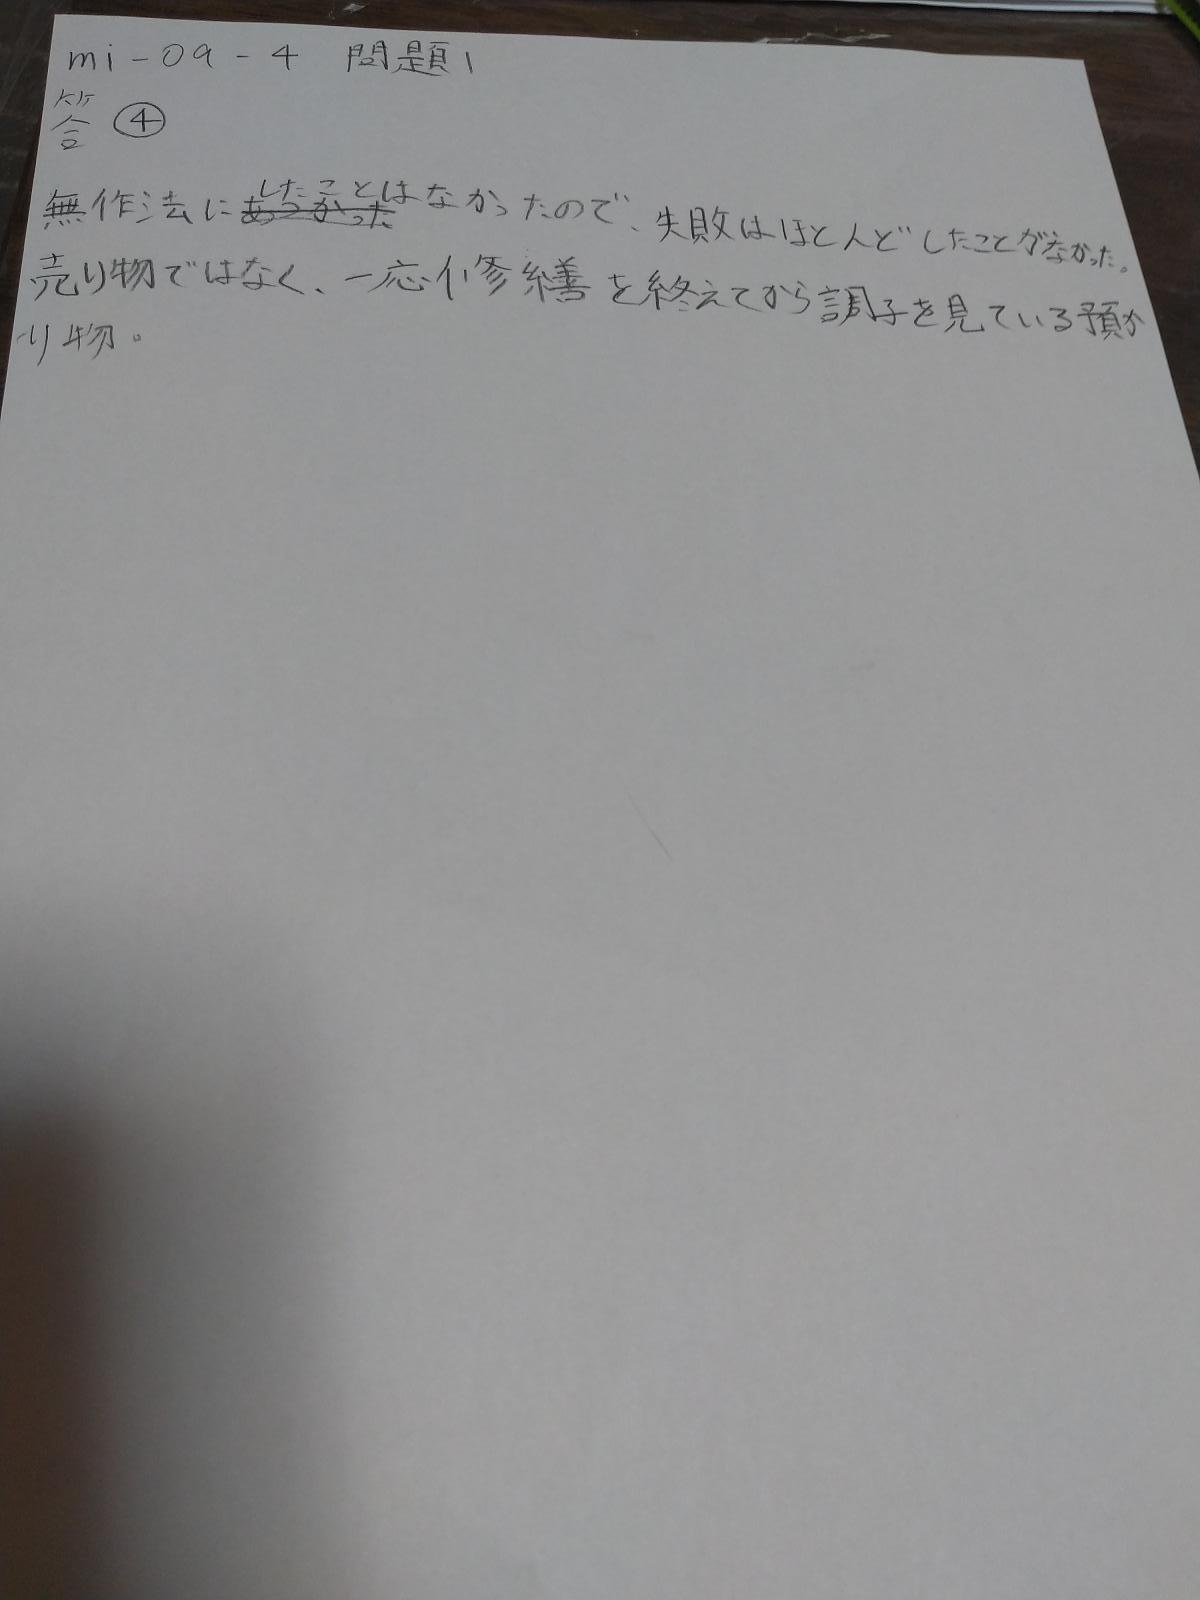 mi-09-4 問題1
答 ④
無作法にしたことはなかったので、失敗はほとんどしたことがなかった。
売り物ではなく、一応修繕を終えてから調子を見ている預か
り物。